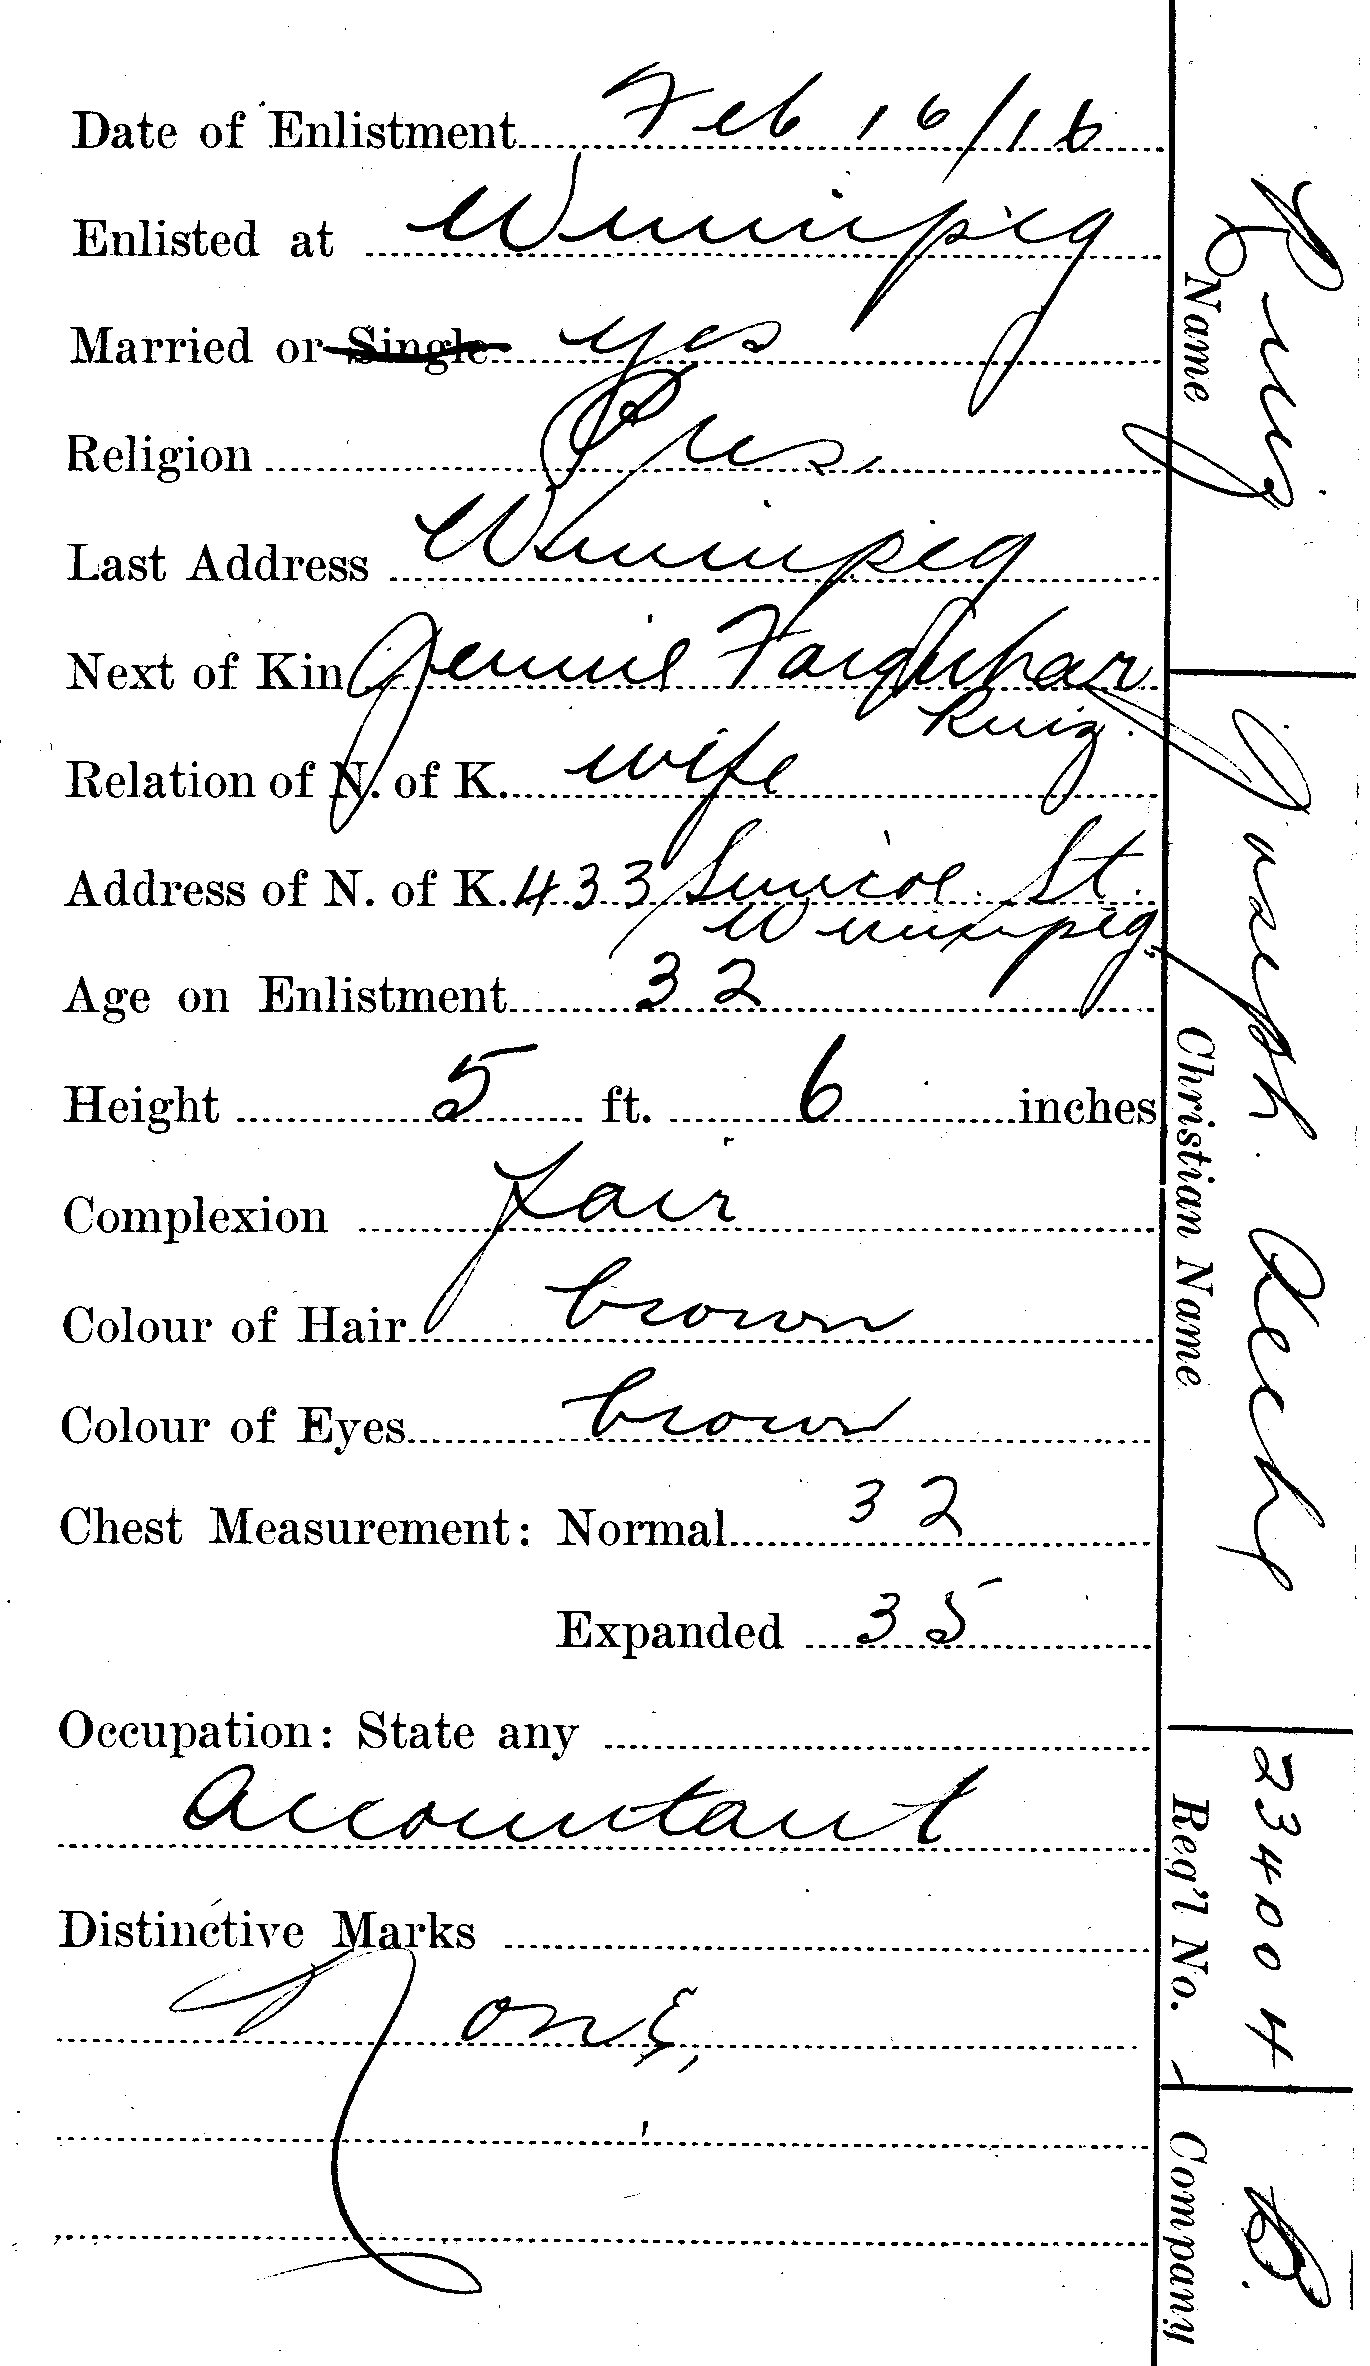 Date of Enlistment Feb 16/16
Enlisted at Winnipeg
Married or Single yes
Religion Pres.
Last Address Winnipeg
Next of Kin Jennie Farquhar
Ruiz.
Relation of N. of K. wife
Address of N. of K. 433 Simcoe St.
Winnipeg,
Age on Enlistment 32
Height 5 ft. 6 inches
Complexion fair
Colour of Hair brown
Colour of Eyes brown
Chest Measurement: Normal 32
Expanded 35
Occupation: State any
Accountant
Distinctive Marks
None,
Name Ruiz.
Christian Name Joseph.
Reg'l No. 234004
Company B.